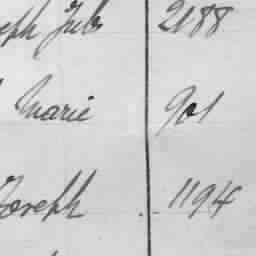 eph Jules 2188
Marie 901
Joseph 1194